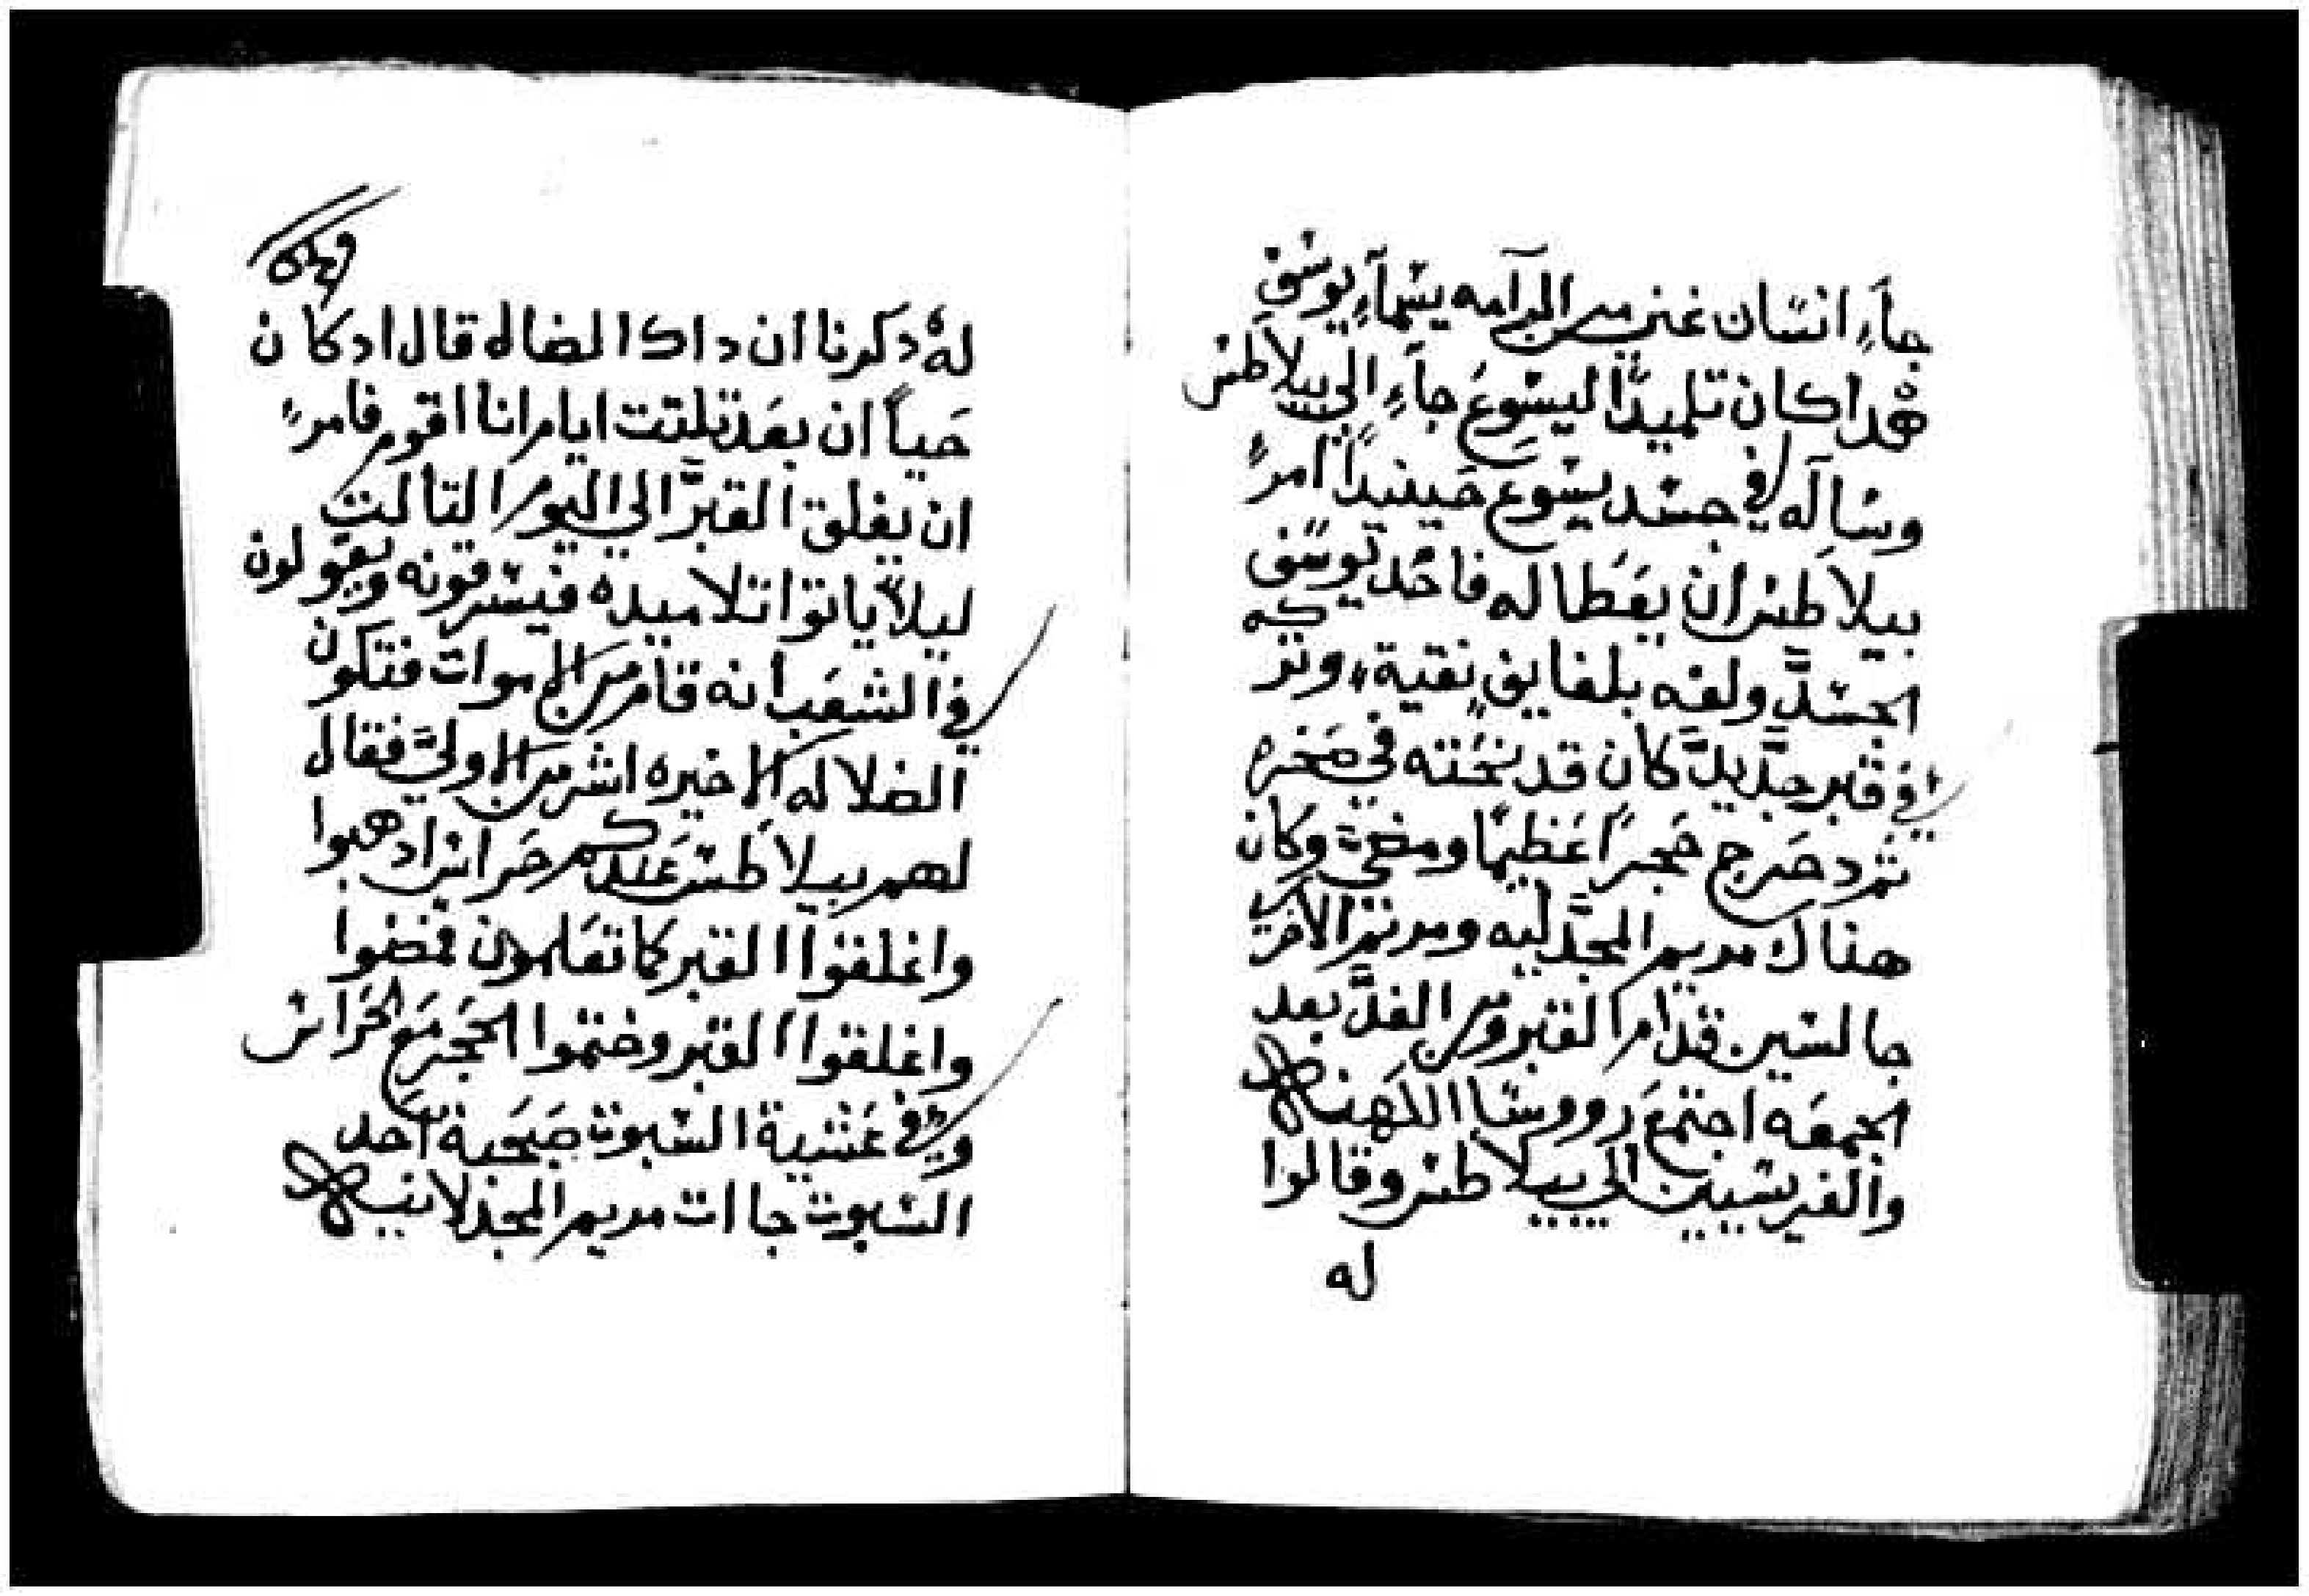 جآءِ انسان غني من الرآمه يسمآءِ يوسف
هدا كان تلميدًا ليسوع جآءِ الي بيلاطس
وسالَه في جسد يسوع حينيدًا امرً
بيلاطس ان يعَطا له فاخد يوسف
الجسدَّ ولفه بلفايف نقية، وتركه
في قبر جدَّيدَّ كان قد نحَته في صَخره
تم دحَرج حَجرًا عَظيمًا ومضيَ وكان
هناك مريم المجدَّليه ومريم الاخري
جالسين قدام القبر ومن الغدَّ بعد
الجمعَه اجتمعَ رووسا اللَهنه
والفريسيين الي بيلاطس وقالوا
له
لهُ دَكرنا ان داك الضاله قال ادكان
حَياً ان بعَد تلتت ايام انا اقوم فامرً
ان يغلق القبرَّ الي اليوم التالت
ليلاً ياتوا تلاميده فيسرقونه ويقولون
في الشعَب انه قام من الاموات فتكون
الضلاله الاخيره اشر من الاوليَّ فقال
لهم بيلاطس عَندكم حَراس ادهبوا
واغلقوا القبر كما تعَلمون فمضوا
واغلقوا القبر وختموا الحَجر مَع الحَراس
وفي عَشية السبوت صَبحَية احَد
السبوت جاات مريم المجدلانيه